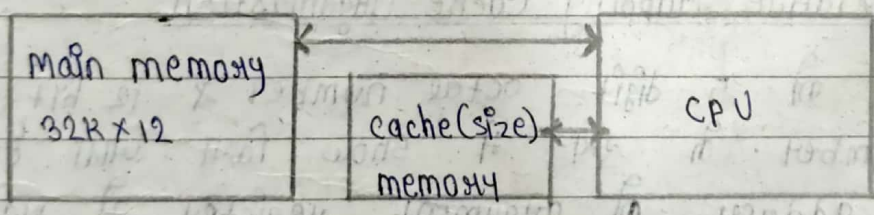 Main memory
32K × 12
cache(size)
memory
CPU